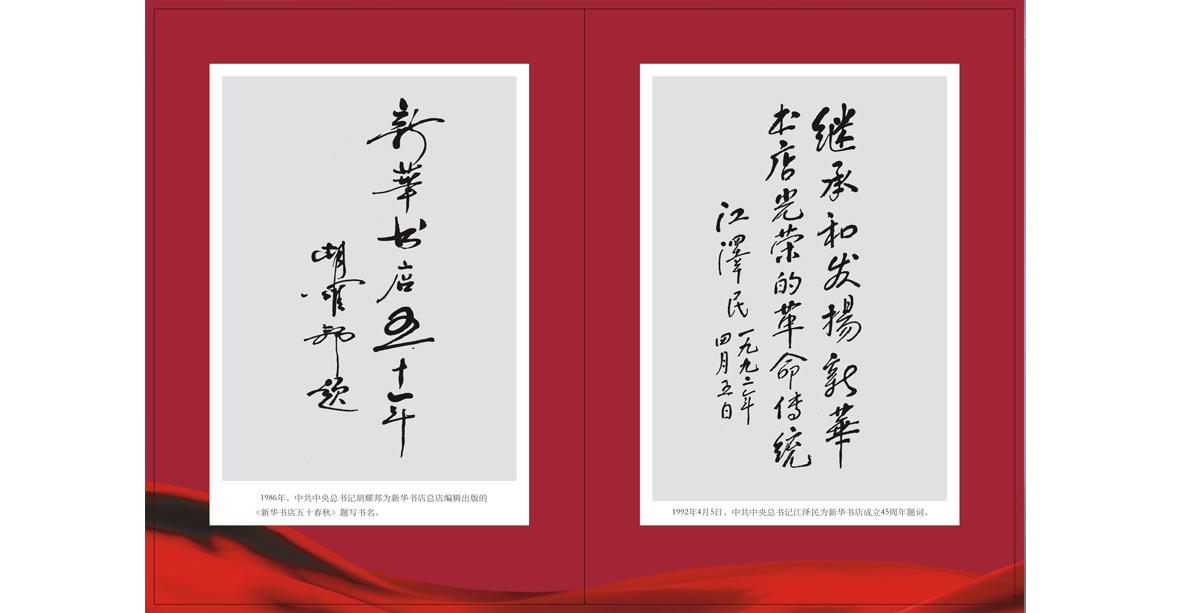 新華书店五十年
胡耀邦题
1986年、中共中央总书记胡耀邦为新华书店总店编辑出版的
《新华书店五十春秋》题写书名。
继承和发揚新華
书店光荣的革命傳统
江澤民
一九九二年
四月五日
1992年4月5日、中共中央总书记江泽民为新华书店成立45周年题词。